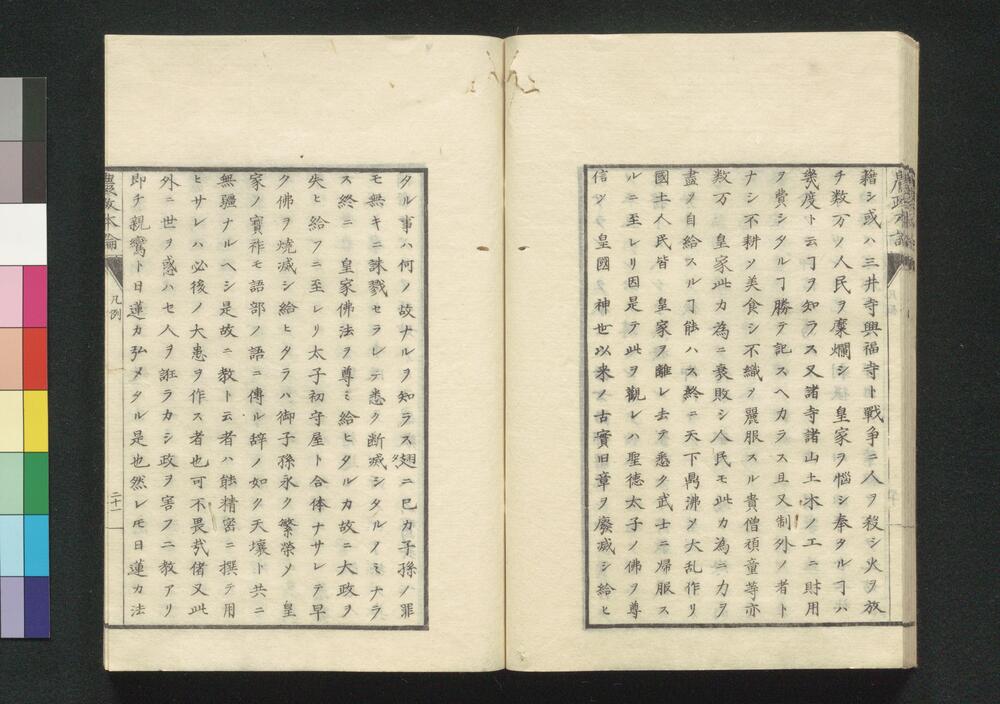 農政本論
藉シ或ハ三井寺興福寺ト戰爭ニ人ヲ殺シ火ヲ放
チ数万ノ人民ヲ糜爛シ 皇家ヲ惱シ奉タルヿハ
幾度ト云ヿヲ知ラス又諸寺諸山土木ノ工ニ財用
ヲ費シタルヿ勝テ記スヘカラス且又制外ノ者ト
ナシ不耕ソ美食シ不織ヲ麗服スル貴僧頑童等亦
数万 皇家此カ為ニ衰敗シ人民モ此カ為ニ力ヲ
盡メ自給スルヿ能ハス終ニ天下鼎沸メ大乱作リ
國士人民皆 皇家ヲ離レ去テ悉ク武士ニ帰服ス
ルニ至レリ因是テ此ヲ觀レハ聖德太子ノ佛ヲ尊
信ソラ皇國ノ神世以来ノ古實旧章ヲ廢滅シ給ヒ
タル事ハ何ノ故ナルヲ知ラス翅ニ己カ子孫ノ罪
モ無キニ誅戮セラレテ悉ク断滅シタルノミナラ
ス終ニ 皇家佛法ヲ尊ミ給ヒタルカ故ニ大政ヲ
失ヒ給フニ至レリ太子初守屋ト合体ナサレテ早
ク佛ヲ燒滅シ給ヒタラハ御子孫永ク繁榮ソ 皇
家ノ寶祚モ語部ノ語ニ傳ル辞ノ如ク天壤ト共ニ
無疆ナルヘシ是故ニ教ト云者ハ能精密ニ撰テ用
ヒサレハ必後ノ大患ヲ作ス者也可不畏哉偖又此
外ニ世ヲ惑ハセ人ヲ誑ラカシ政ヲ害フニ教アリ
即チ親鸞ト日蓮カ弘メタル是也然レモ日蓮カ法
農政本論
凡例
二十一